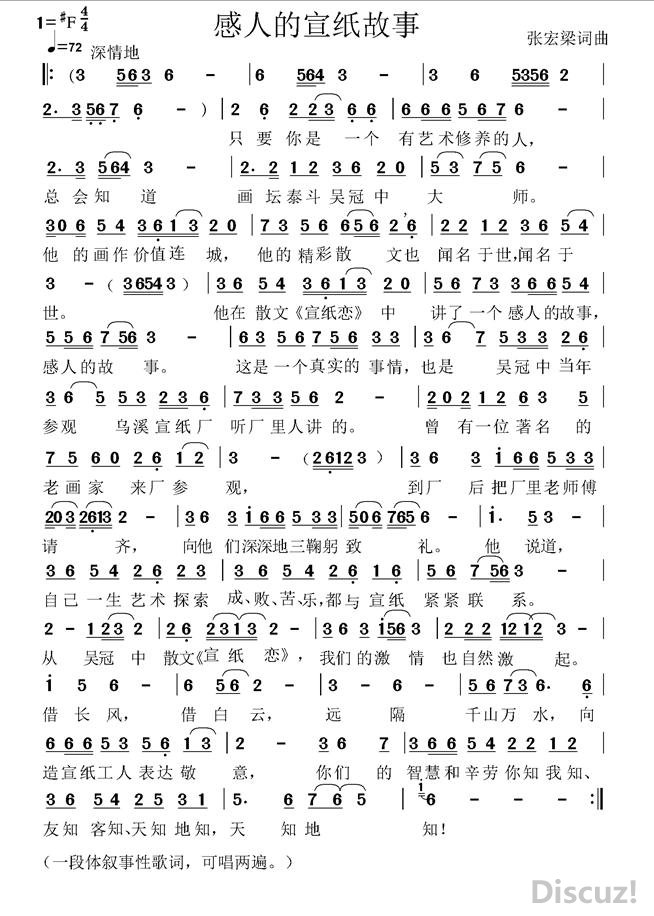 感人的宣纸故事
1=♯F 4/4
♩=72 深情地
张宏梁词曲
‖: (3 563 6 - | 6 564 3 - | 3 6 5356 2 |
2. 3 567 6 - ) | 2 6 223 6 6 | 6 6 6 5 6 7 6 |
只要你是一个 有艺术修养的人，
2. 3 564 3 - | 2. 2 1 2 3 6 2 0 | 5 3 7 5 6 - |
总会知道 画坛泰斗吴冠中 大师。
306 5 4 3 6 1 3 2 0 | 7 3 5 6 656 2 | 2 2 1 2 3 6 5 4 |
他的画作价值连城， 他的精彩散文也 闻名于世,闻名于
3 - (36543) | 3 6 5 4 3 6 1 3 2 0 | 5 6 7 3 3 6 5 6 |
世。 他在散文《宣纸恋》中 讲了一个感人的故事，
5 5 6 7 56 3 - | 6 3 5 6 7 5 6 3 3 | 3 6 7 5 3 3 2 6 |
感人的故事。 这是一个真实的事情，也是 吴冠中当年
3 6 5 5 3 2 3 6 | 7 3 3 5 6 2 - | 2 0 2 1 2 6 3 5 |
参观 乌溪宣纸厂 听厂里人讲的。 曾有一位著名的
7 5 6 0 2 6 1 2 | 3 - (26123) | 3 6 3 i 6 6 5 3 |
老画家 来厂参观， 到厂后把厂里老师傅
203 2613 2 - | 3 6 3 i 6 6 5 3 | 506 765 6 - | i. 5 3 - |
请齐， 向他们深深地三鞠躬致礼。 他说道，
3 6 5 4 2 6 2 3 | 3 6 5 4 2 6 1 6 | 5 6 7 56 3 - |
自己一生艺术探索 成、败、苦、乐,都与宣纸 紧紧联系。
2 - 1 2 3 2 | 2 6 2313 2 - | 3 6 3 i563 | 2 2 2 1212 3 - |
从 吴冠中 散文《宣纸恋》， 我们的激情 也自然激起。
i 5 6 - | 6 5 6 2 - | 3 - 6 - | 5 6 7 3 6. 6 |
借长风， 借白云， 远隔 千山万水，向
6 6 6 5 3 5 6 1 3 | 2 - - - | 3 3 6 7 | 3 6 6 5 4 2 2 1 2 |
造宣纸工人表达敬意， 你们的 智慧和辛劳你知我知、
3 6 5 4 2 5 3 1 | 5. 6 7 6 5 | 6 - - - :‖
友知客知、天知地知，天知地 知！
（一段体叙事性歌词，可唱两遍。）
Discuz!